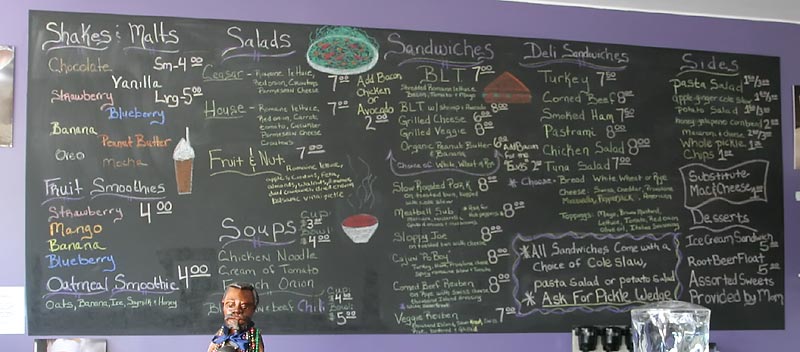 Shakes & Malts
Chocolate Sm-4.00
Vanilla
Strawberry Lrg-5.00
Blueberry
Banana
Peanut Butter
Oreo
Mocha
Fruit Smoothies
Strawberry 4.00
Mango
Banana
Blueberry
Oatmeal Smoothie 4.00
Oats, Banana, Ice, Soymilk & Honey
Salads
Ceasar - Romaine lettuce,
Red onion, Croutons 7.00
Parmesan Cheese
Add Bacon
Chicken
or
Avocado
2.00
House - Romaine lettuce,
Red onion, Carrots 7.00
tomato, Cucumber
Parmesan Cheese
Croutons
Fruit & Nut 7.00
Romaine lettuce,
Soups
Cup
Bowl
$4.00
Chicken Noodle
Cream of Tomato
French Onion
Chili
Cup
$4.00
Bowl
$5.00
Sandwiches
BLT 7.00
Shredded Romaine lettuce
Bacon, Tomato & Mayo
BLT w/ shrimp & Avocado 8.00
Grilled Cheese 6.00
Grilled Veggie 8.00
Organic Peanut Butter
& Banana 6.00
Choice of White, Wheat or Rye
Slow Roasted Pork 8.00
Meatball Sub 8.00
Sloppy Joe 8.00
on toasted bun with cheese
Cajun Po Boy 8.00
Corned Beef Reuben 8.00
Veggie Reuben 7.00
Deli Sandwiches
Turkey 7.50
Corned Beef 8.00
Smoked Ham 7.50
Pastrami 8.00
Chicken Salad 8.00
Tuna Salad 7.00
Choose - Bread White, Wheat or Rye
Cheese - Swiss, Cheddar, Provolone
Mozzarella, Pepperjack, American
Toppings - Mayo, Brown Mustard,
Lettuce, Tomato, Red onion
Olive oil, Italian Seasoning
*All Sandwiches Come with a
Choice of Cole slaw,
pasta salad or potato salad
* Ask For Pickle Wedge *
Sides
Pasta Salad
apple-ginger cole slaw
Potato Salad
honey-jalapeno cornbread
macaroni & cheese
Whole pickle 1.00
Chips 1.00
Substitute
Mac & Cheese
Desserts
Ice Cream Sandwich
Root Beer Float
Assorted Sweets
Provided by Mom